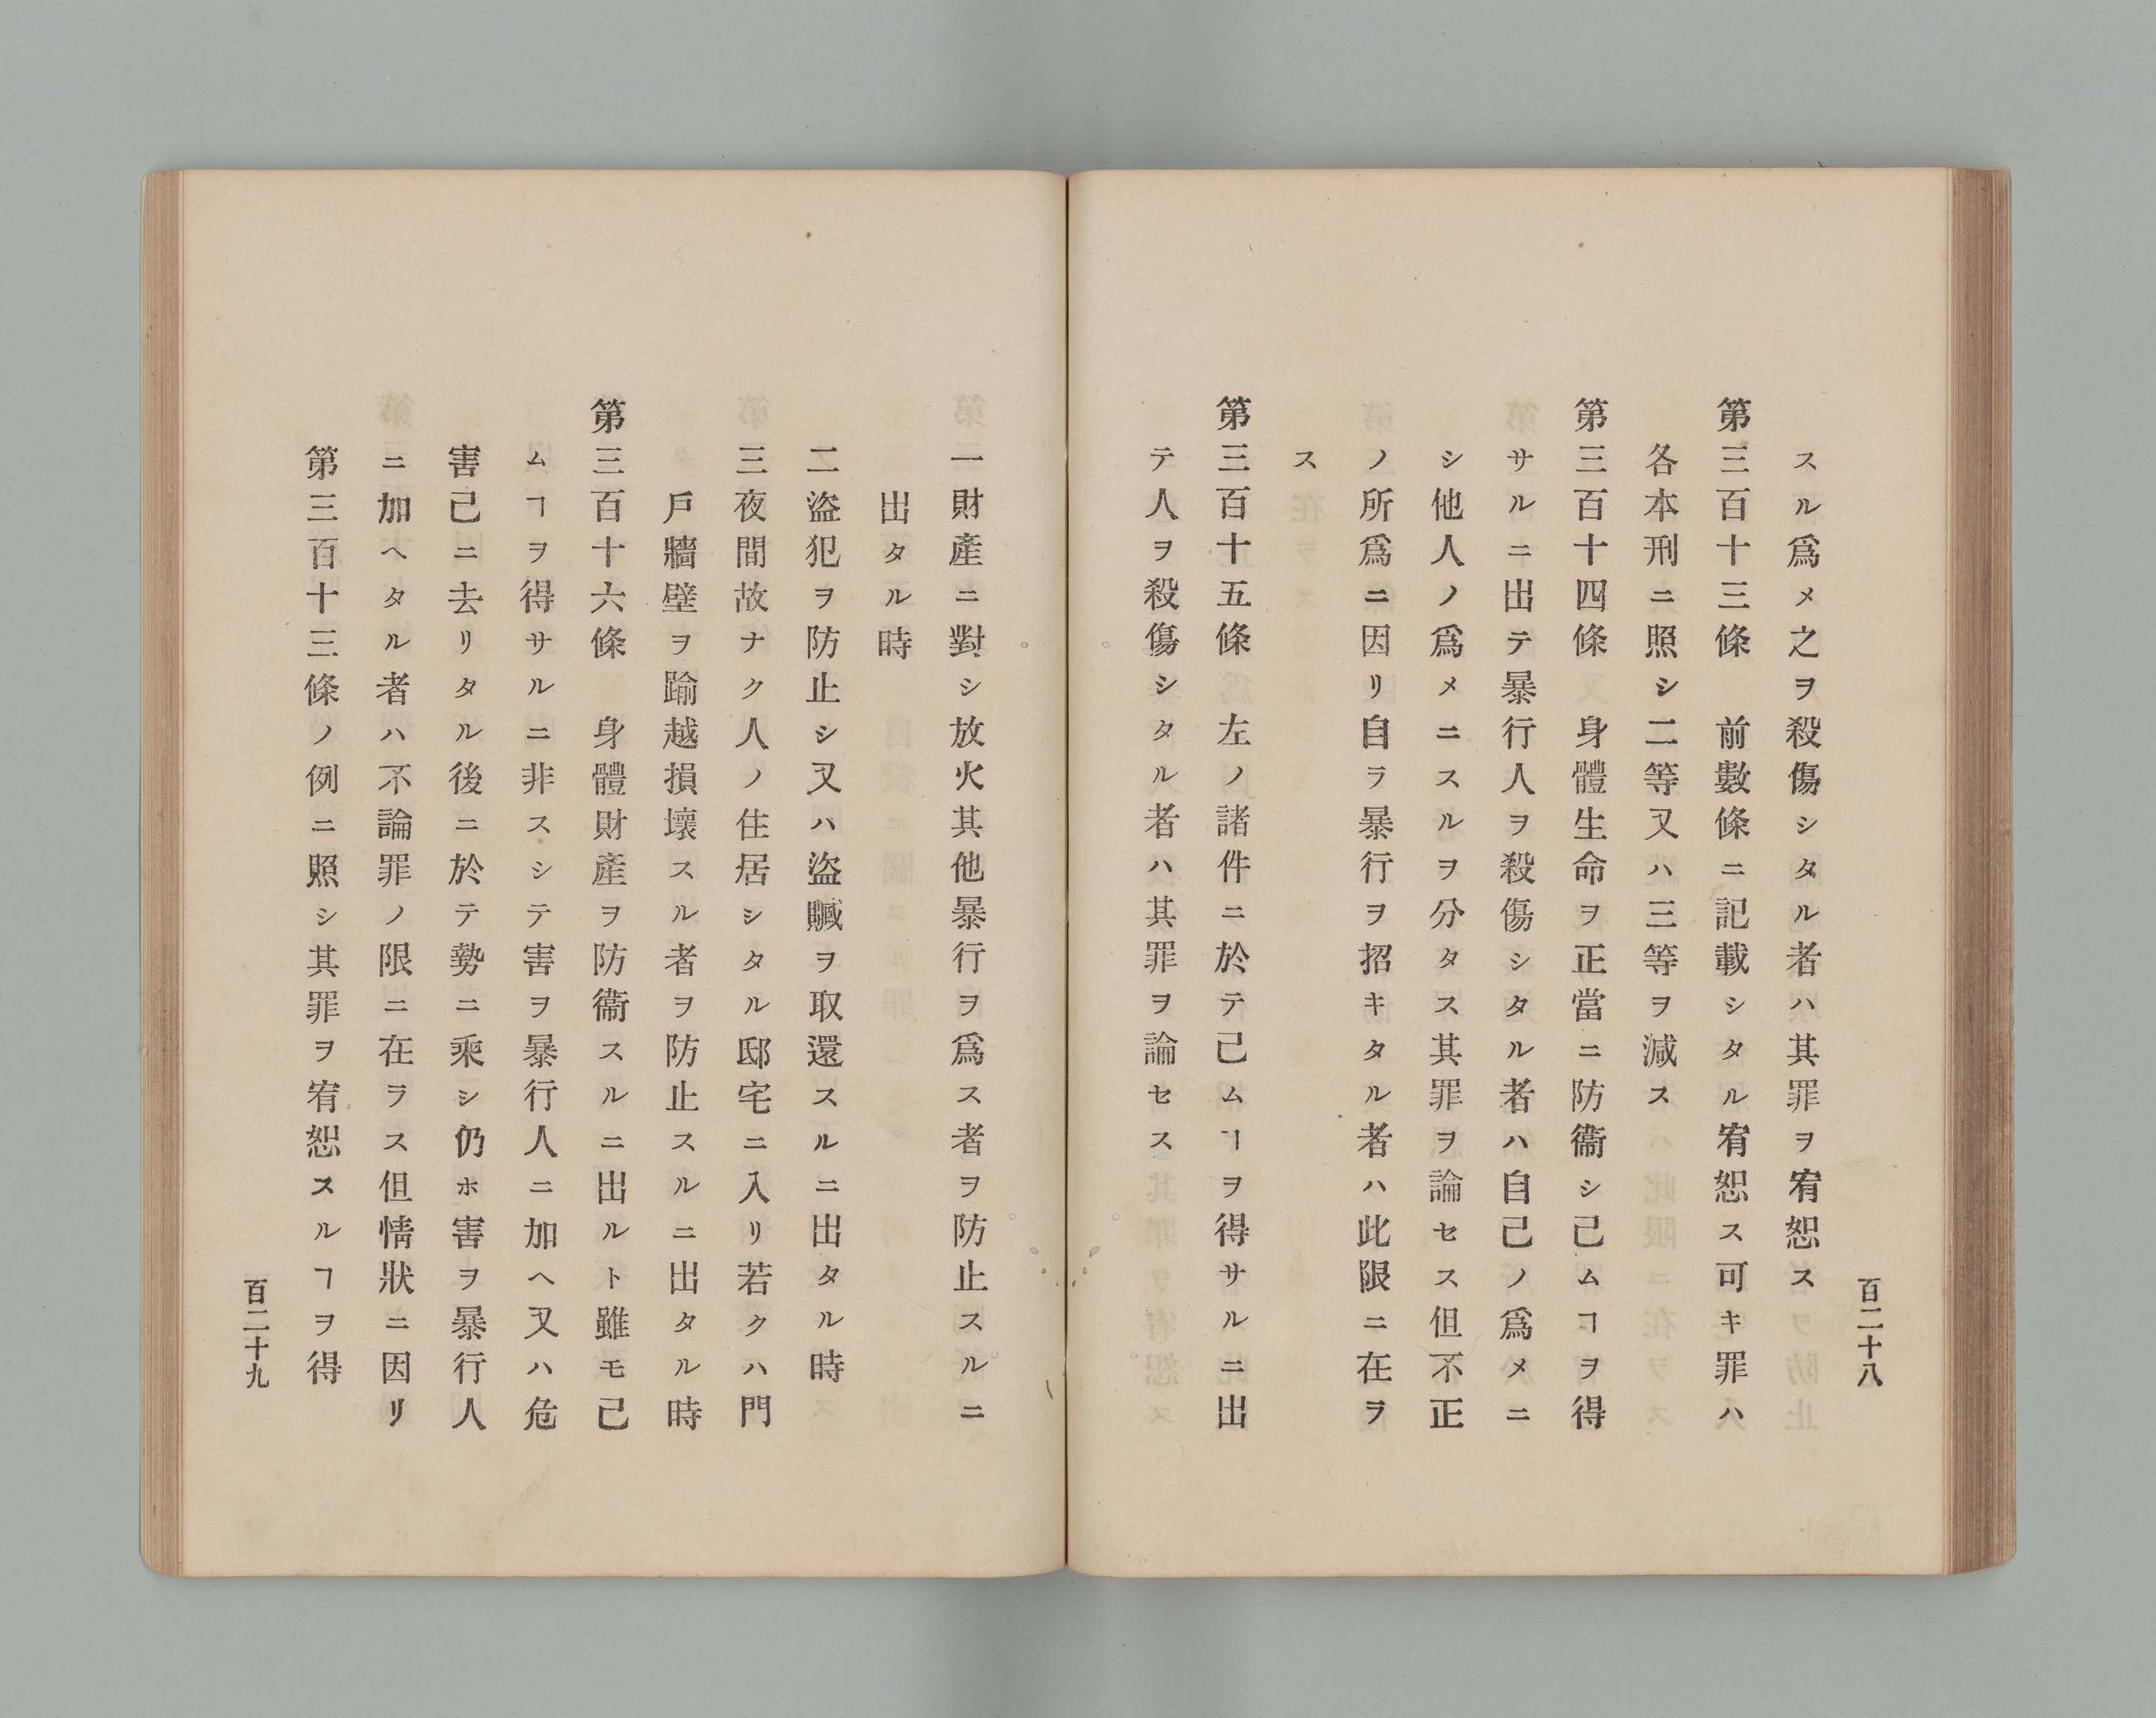 百二十八
スル爲メ之ヲ殺傷シタル者ハ其罪ヲ宥恕ス
第三百十三條　前數條ニ記載シタル宥恕ス可キ罪ハ
各本刑ニ照シ二等又ハ三等ヲ減ス
第三百十四條　身體生命ヲ正當ニ防衞シ己ムヿヲ得
サルニ出テ暴行人ヲ殺傷シタル者ハ自己ノ爲メニ
シ他人ノ爲メニスルヲ分タス其罪ヲ論セス但不正
ノ所爲ニ因リ自ラ暴行ヲ招キタル者ハ此限ニ在ラ
ス
第三百十五條　左ノ諸件ニ於テ己ムヿヲ得サルニ出
テ人ヲ殺傷シタル者ハ其罪ヲ論セス
一財產ニ對シ放火其他暴行ヲ爲ス者ヲ防止スルニ
出タル時
二盜犯ヲ防止シ又ハ盜贓ヲ取還スルニ出タル時
三夜間故ナク人ノ住居シタル邸宅ニ入リ若クハ門
戶牆壁ヲ踰越損壞スル者ヲ防止スルニ出タル時
第三百十六條　身體財產ヲ防衞スルニ出ルト雖モ己
ムヿヲ得サルニ非スシテ害ヲ暴行人ニ加ヘ又ハ危
害己ニ去リタル後ニ於テ勢ニ乘シ仍ホ害ヲ暴行人
ニ加ヘタル者ハ不論罪ノ限ニ在ラス但情狀ニ因リ
第三百十三條ノ例ニ照シ其罪ヲ宥恕スルヿヲ得
百二十九